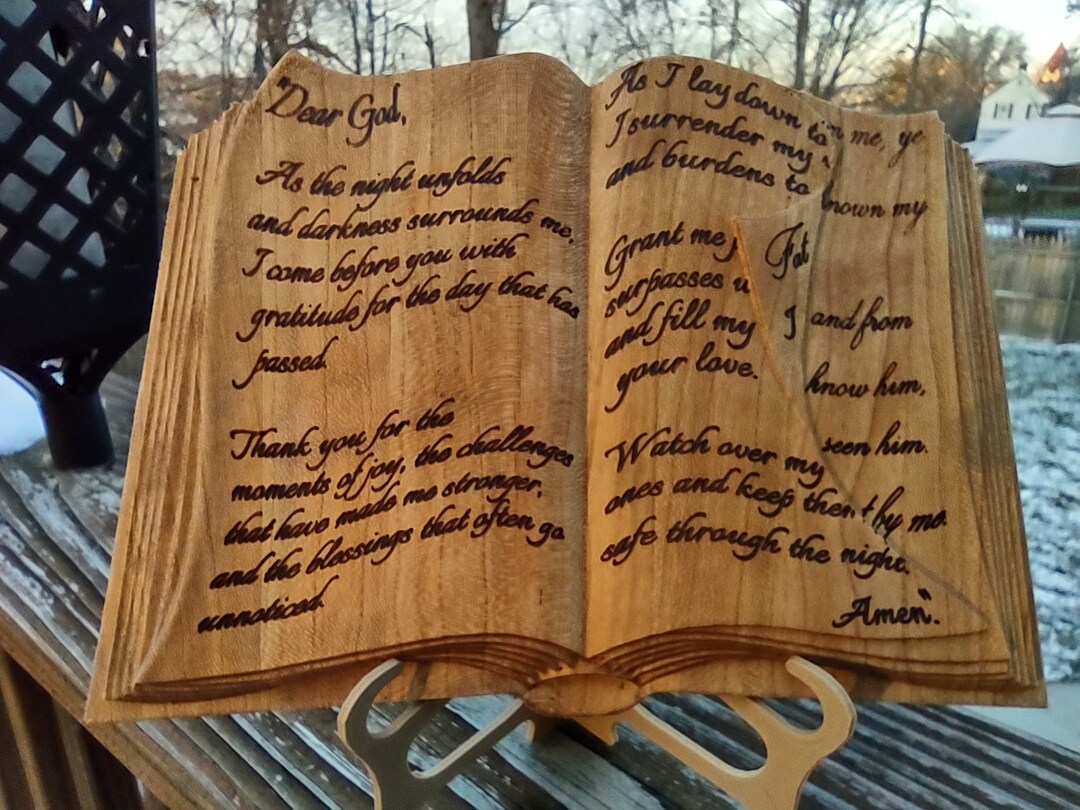 "Dear God,
As the night unfolds
and darkness surrounds me,
I come before you with
gratitude for the day that has
passed.
Thank you for the
moments of joy, the challenges
that have made me stronger,
and the blessings that often go
unnoticed.
As I lay down to
I surrender my
and burdens to
Grant me
surpasses
and fill my
your love.
Watch over my
ones and keep them
safe through the night.
Amen".
me, ye
nown my
Fat
I and from
know him,
seen him.
t by me